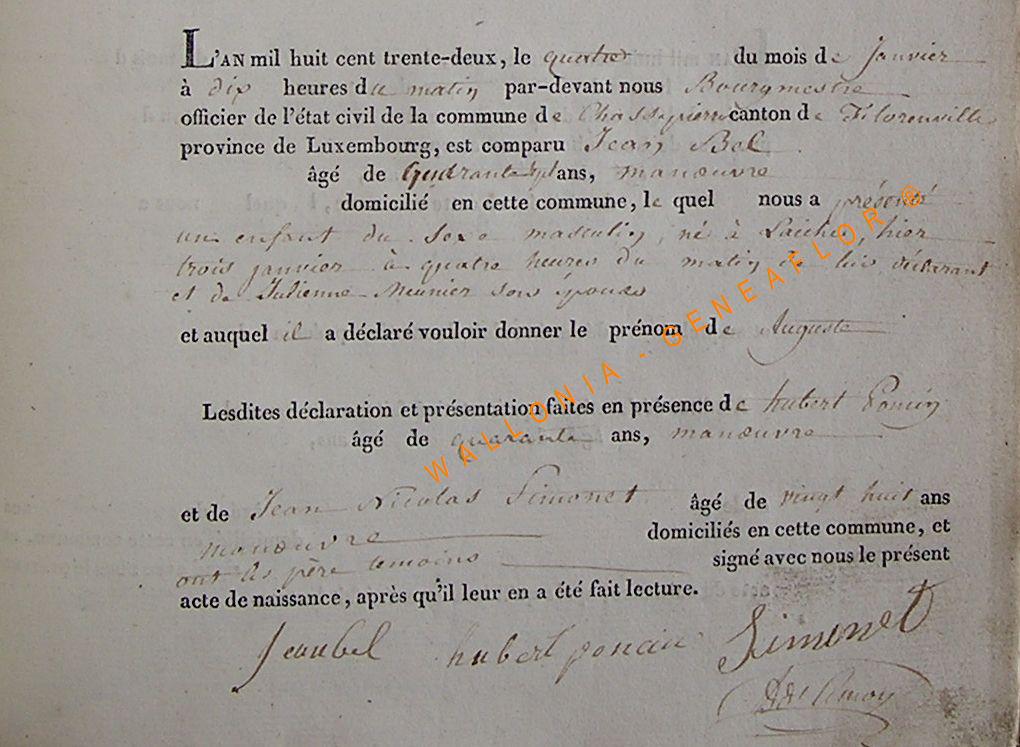 L'AN mil huit cent trente-deux, le quatre du mois de janvier
à dix heures du matin par-devant nous Bourgmestre
officier de l'état civil de la commune de Chassepierre canton de Florenville
province de Luxembourg, est comparu Jean Bel
âgé de quarante ans, manœuvre
domicilié en cette commune, le quel nous a présenté
un enfant du sexe masculin, né à Laiche, hier
trois janvier à quatre heures du matin de lui déclarant
et de Julienne Meunier son épouse
et auquel il a déclaré vouloir donner le prénom de Auguste
Lesdites déclaration et présentation faites en présence de hubert Poncin
âgé de quarante ans, manœuvre
et de Jean Nicolas Simonet âgé de vingt huit ans
manœuvre domiciliés en cette commune, et
ont les père temoins signé avec nous le présent
acte de naissance, après qu'il leur en a été fait lecture.
Jean bel hubert poncin Simonet
WALLONIA - GENEAFLOR ®